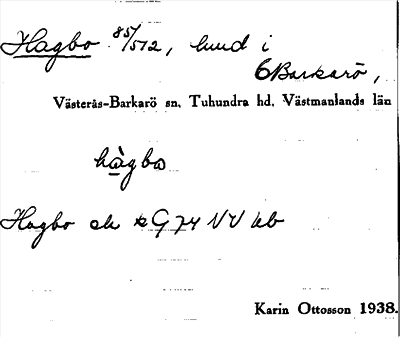 Hagbo 85/512, hund i
6 Barkarö,
Västerås-Barkarö sn. Tuhundra hd. Västmanlands län
hàgbo
Hagbo ek G 74 NV kb
Karin Ottosson 1938.